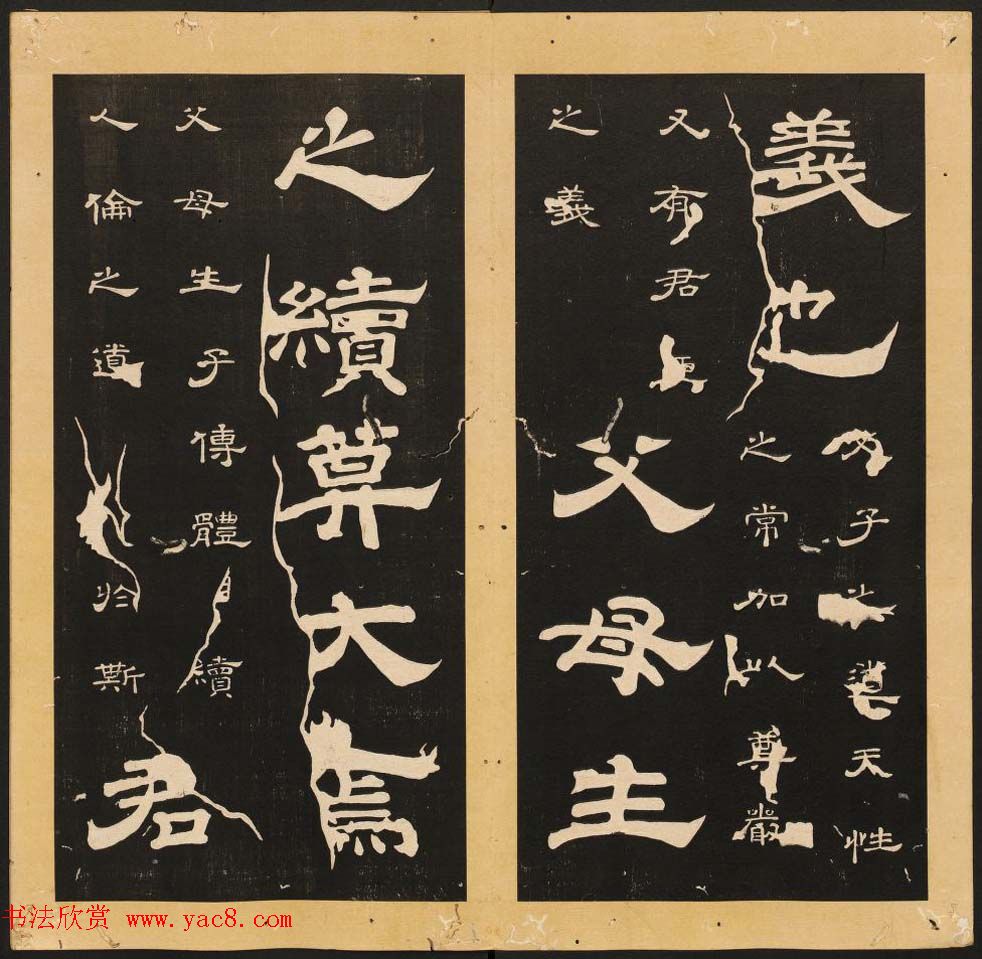 義也
父子之道天性
之常加以尊嚴
又有君臣
之義
父母生
之續莫大焉
父母生子傳體相續
人倫之道於斯
君
书法欣赏 www.yac8.com